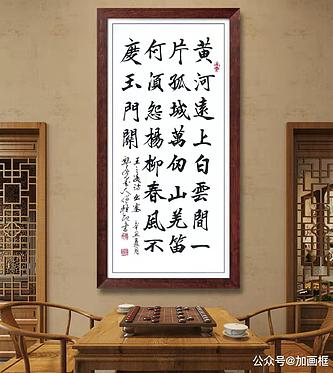 黄河遠上白雲間一
片孤城萬仞山羌笛
何須怨楊柳春風不
度玉門關
王之渙詩出塞
公众号@加画框